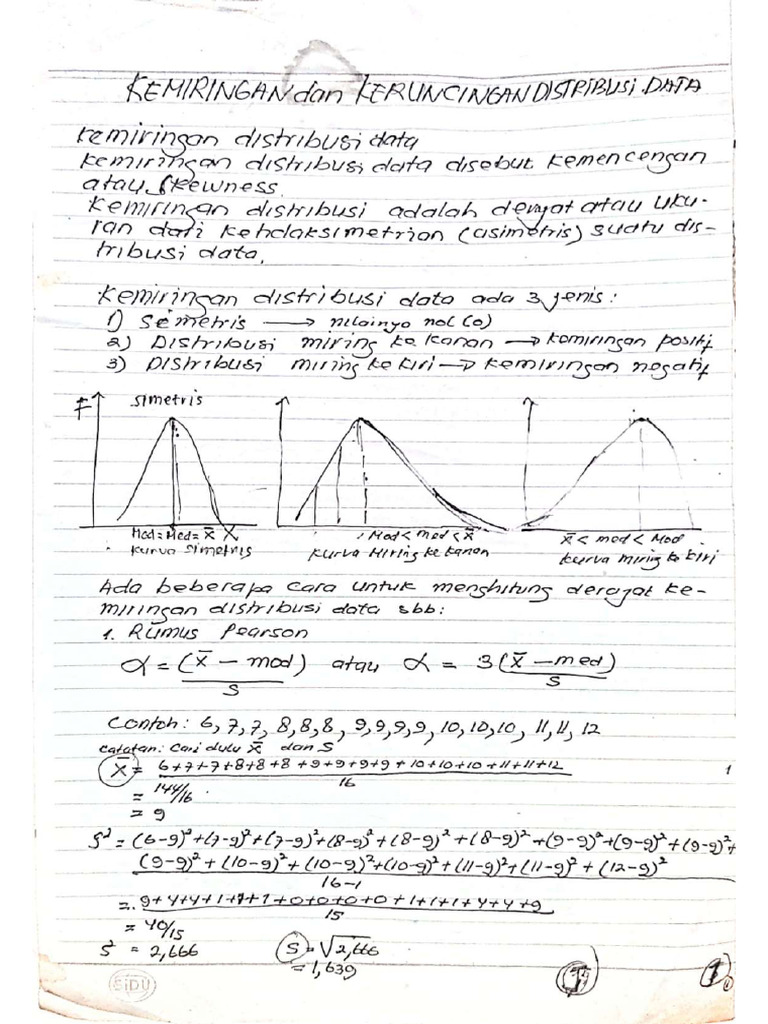 KEMIRINGAN dan KERUNCINGAN DISTRIBUSI DATA
Kemiringan distribusi data
Kemiringan distribusi data disebut kemencengan
atau Skewness.
Kemiringan distribusi adalah derajat atau uku-
ran dari ketidaksimetrian (asimetris) suatu dis-
tribusi data.
Kemiringan distribusi data ada 3 jenis:
1) Simetris → nilainya nol (0)
2) Distribusi miring ke kanan → kemiringan positif
3) Distribusi miring ke kiri → kemiringan negatif
F simetris
Mod = Med = x̄ X
kurva simetris
Mod < med < x̄
kurva Miring ke kanan
x̄ < med < Mod
kurva miring ke kiri
Ada beberapa cara untuk menghitung derajat ke-
miringan distribusi data sbb:
1. Rumus Pearson
α = (x̄ - mod) / S atau α = 3(x̄ - med) / S
Contoh: 6, 7, 7, 8, 8, 8, 9, 9, 9, 9, 10, 10, 10, 11, 11, 12
Catatan: Cari dulu x̄ dan S
x̄ = 6+7+7+8+8+8+9+9+9+9+10+10+10+11+11+12
16
= 144/16
= 9
1
S² = (6-9)²+(7-9)²+(7-9)²+(8-9)²+(8-9)²+(8-9)²+(9-9)²+(9-9)²+(9-9)²+
(9-9)²+(10-9)²+(10-9)²+(10-9)²+(11-9)²+(11-9)²+(12-9)²
16-1
= 9+4+4+1+1+1+0+0+0+0+1+1+1+4+4+9
15
= 40/15
S² = 2,666 S = √2,666
= 1,639
SiDU
1